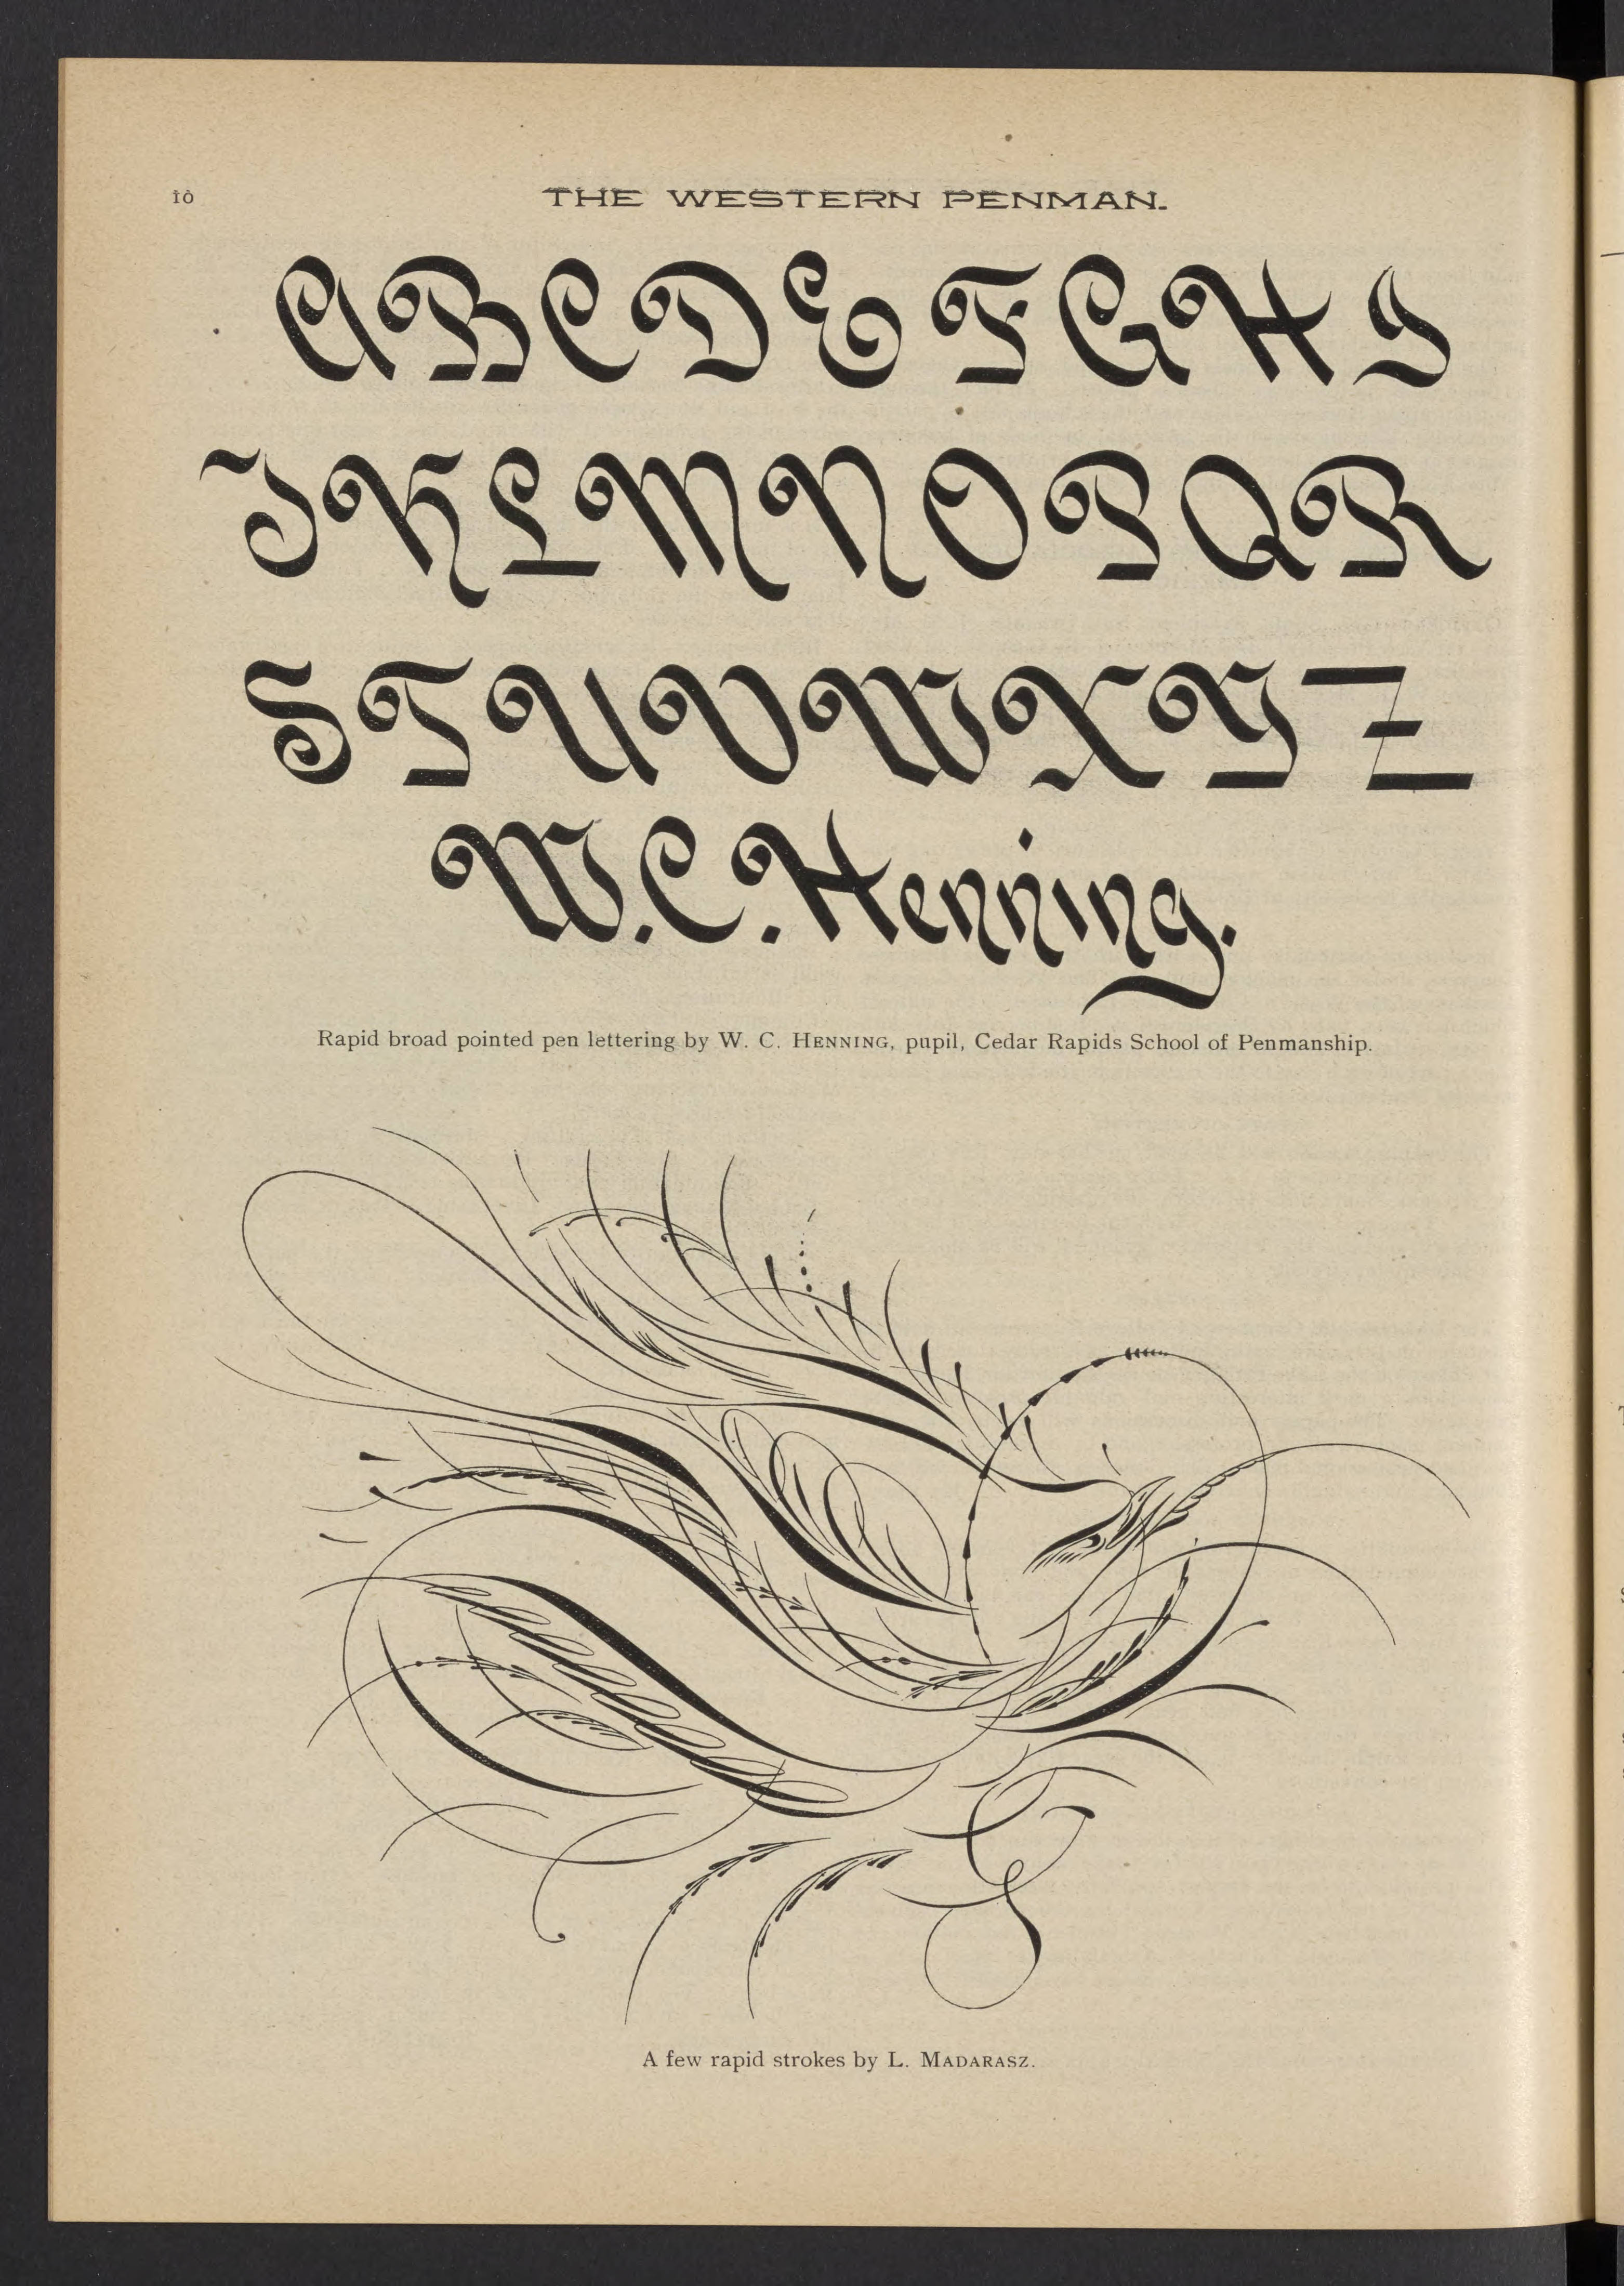 10
THE WESTERN PENMAN.
A B C D E F G H I
J K L M N O P Q R
S T U V W X Y Z
W. C. Henning.
Rapid broad pointed pen lettering by W. C. HENNING, pupil, Cedar Rapids School of Penmanship.
A few rapid strokes by L. MADARASZ.